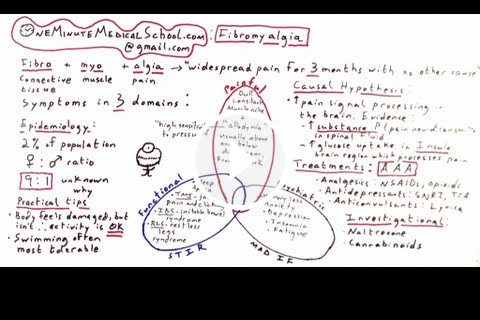 OneMinuteMedicalSchool.com : Fibromyalgia
@gmail.com
Fibro + myo + algia → "widespread pain for 3 months with no other cause"
Connective muscle pain
tissue
Symptoms in 3 domains:
Epidemiology:
2% of population
♀:♂ ratio
9:1 unknown
why
Practical tips
• Body feels damaged, but
isn't ∴ activity is OK
• Swimming often
most tolerable
Painful
Dull
Constant
Muscle ache
+
allodynia
"high sensitiv
to pressu
usually above
and below
Functional
TMJ- ja
pain and click
• IBS- irritable bowel
syndrome
• RLS- restless
legs
syndrome
STIR
Depression
• Insomnia
• Fatigue
MAD IF
Causal Hypothesis:
• ↑ pain signal processing in
the brain. Evidence:
- ↑ substance P (pain neurotransmit
in spinal fluid
- ↑ glucose uptake in Insula
brain region which processes pain
Treatments: AAA
- Analgesics: NSAIDs, opioids
- Antidepressants: SNRI, TCA
- Anticonvulsants: Lyrica
Investigational:
• Naltrexone
• Cannabinoids